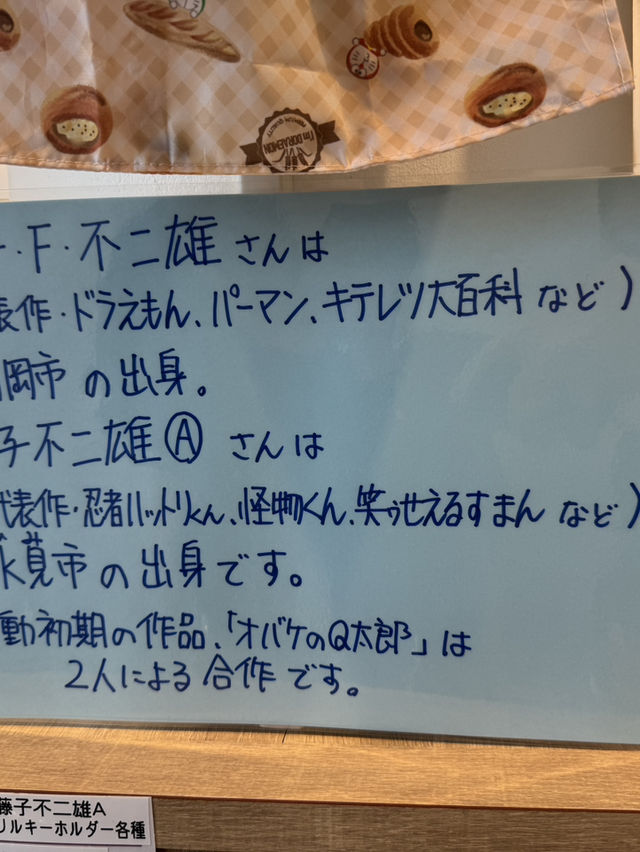 I'm DORAEMON
PREMIUM QUALITY
・F・不二雄 さんは
表作・ドラえもん、パーマン、キテレツ大百科 など)
岡市 の出身。
子不二雄Ⓐ さんは
代表作・忍者ハットリくん、怪物くん、笑ゥせえるすまん など)
氷見市 の出身です。
動初期の作品、「オバケのQ太郎」は
2人による合作です。
藤子不二雄A
リルキーホルダー各種